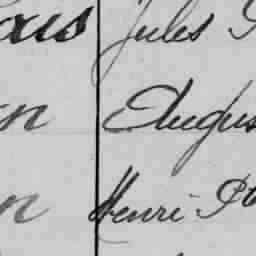 ois Jules
n Augus
n Henri